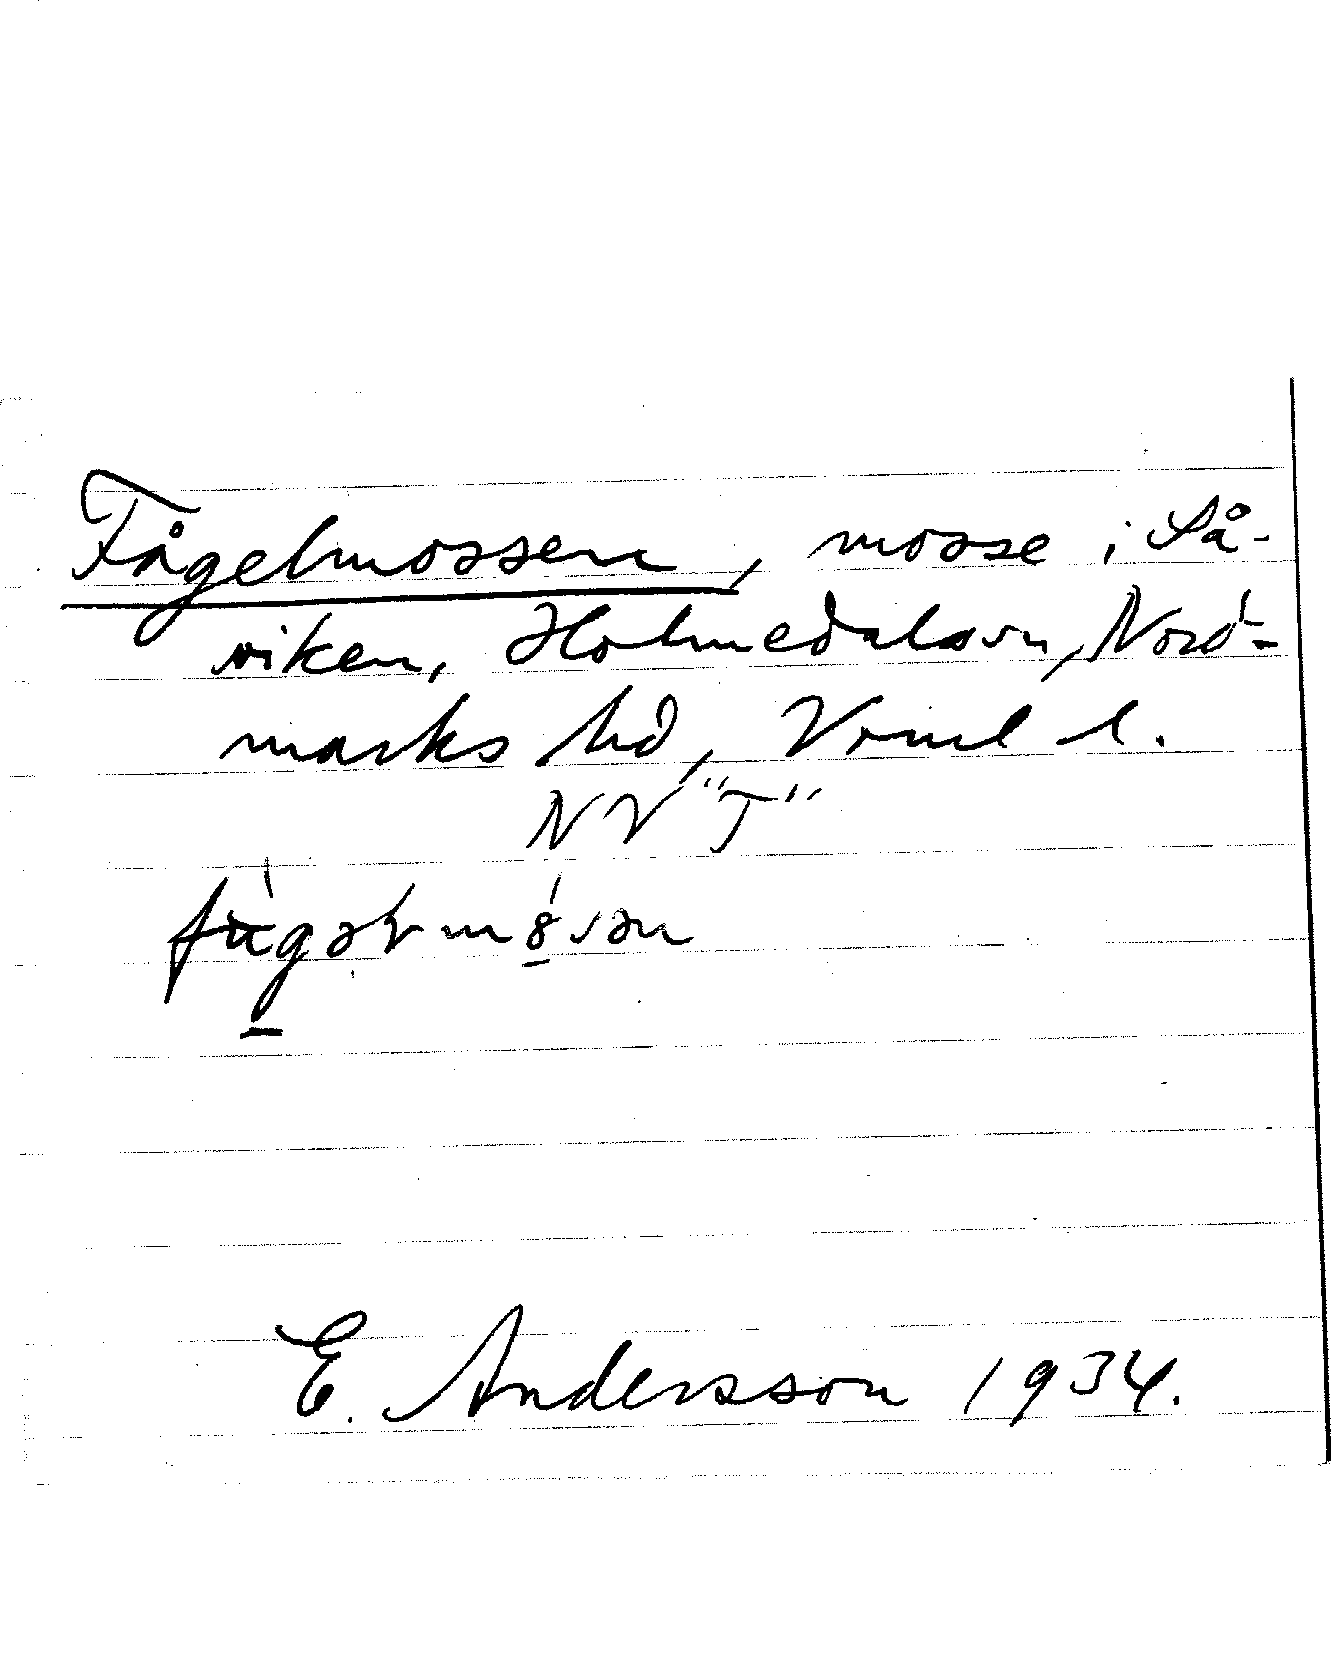 Fågelmossen, mosse i Så-
viken, Holmedals sn, Nord-
marks hd, Vrml l.
NV "T"
E. Andersson 1934.